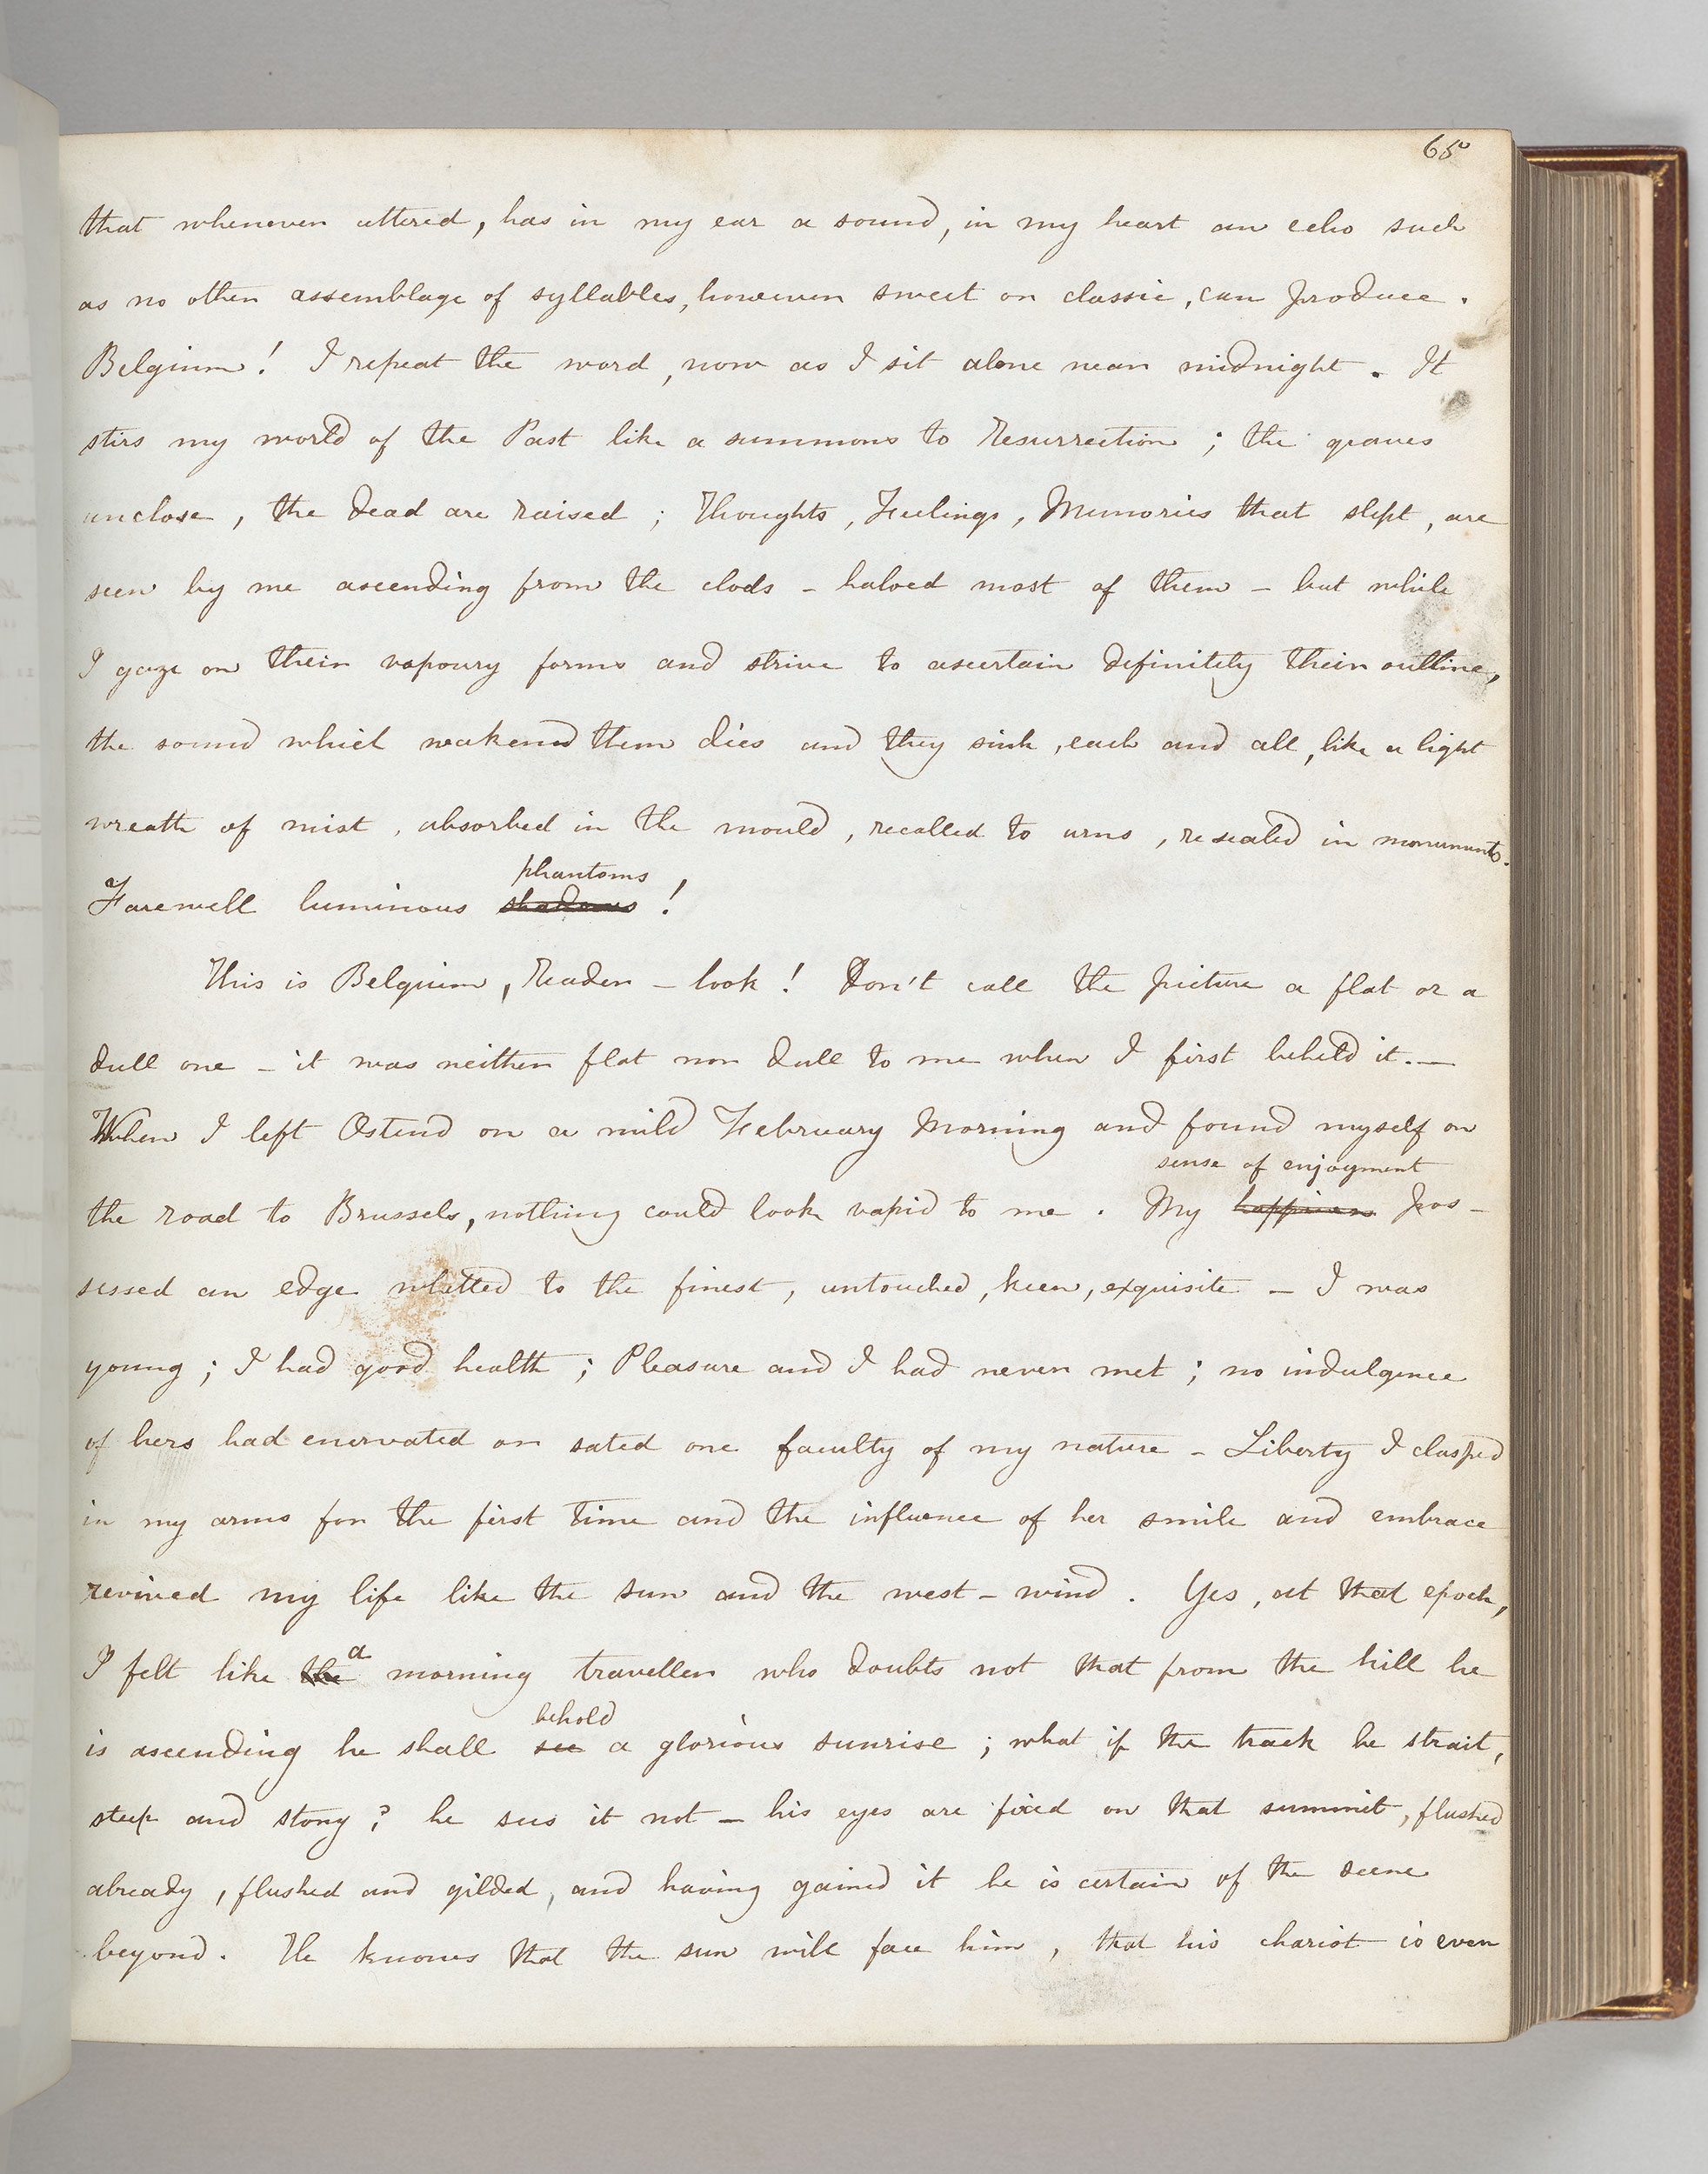 65
that whenever uttered, has in my ear a sound, in my heart an echo such
as no other assemblage of syllables, however sweet or classic, can produce.
Belgium! I repeat the word, now as I sit alone near midnight. It
stirs my world of the Past like a summons to Resurrection; the graves
unclose, the dead are raised; Thoughts, Feelings, Memories that slept, are
seen by me ascending from the clods - haloed most of them - but while
I gaze on their vapoury forms and strive to ascertain definitely their outline,
the sound which wakened them dies and they sink, each and all, like a light
wreath of mist, absorbed in the mould, recalled to urns, resealed in monuments.
phantoms
Farewell luminous shadows!
This is Belgium, Reader - look! Don't call the picture a flat or a
dull one - it was neither flat nor dull to me when I first beheld it. —
When I left Ostend on a mild February Morning and found myself on
sense of enjoyment
the road to Brussels, nothing could look vapid to me. My happiness pos-
sessed an edge whetted to the finest, untouched, keen, exquisite - I was
young; I had good health; Pleasure and I had never met; no indulgence
of hers had enervated or sated one faculty of my nature - Liberty I clasped
in my arms for the first time and the influence of her smile and embrace
revived my life like the sun and the west-wind. Yes, at that epoch,
a
I felt like the morning traveller who doubts not that from the hill he
behold
is ascending he shall see a glorious sunrise; what if the track be strait,
steep and stony? he sees it not - his eyes are fixed on that summit, flushed
already, flushed and gilded, and having gained it he is certain of the scene
beyond. He knows that the sun will face him, that his chariot is even